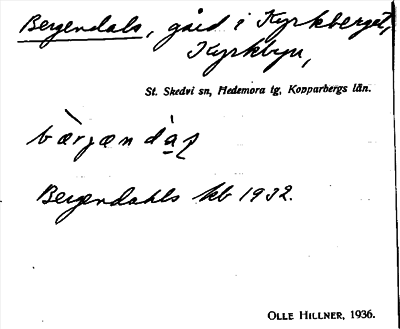 Bergendals, gård i Kyrkberget,
Kyrkbyn,
St. Skedvi sn, Hedemora tg, Kopparbergs län.
bæ̀rjæn dá̠ɭ
Bergendahls kb 1932.
OLLE HILLNER, 1936.